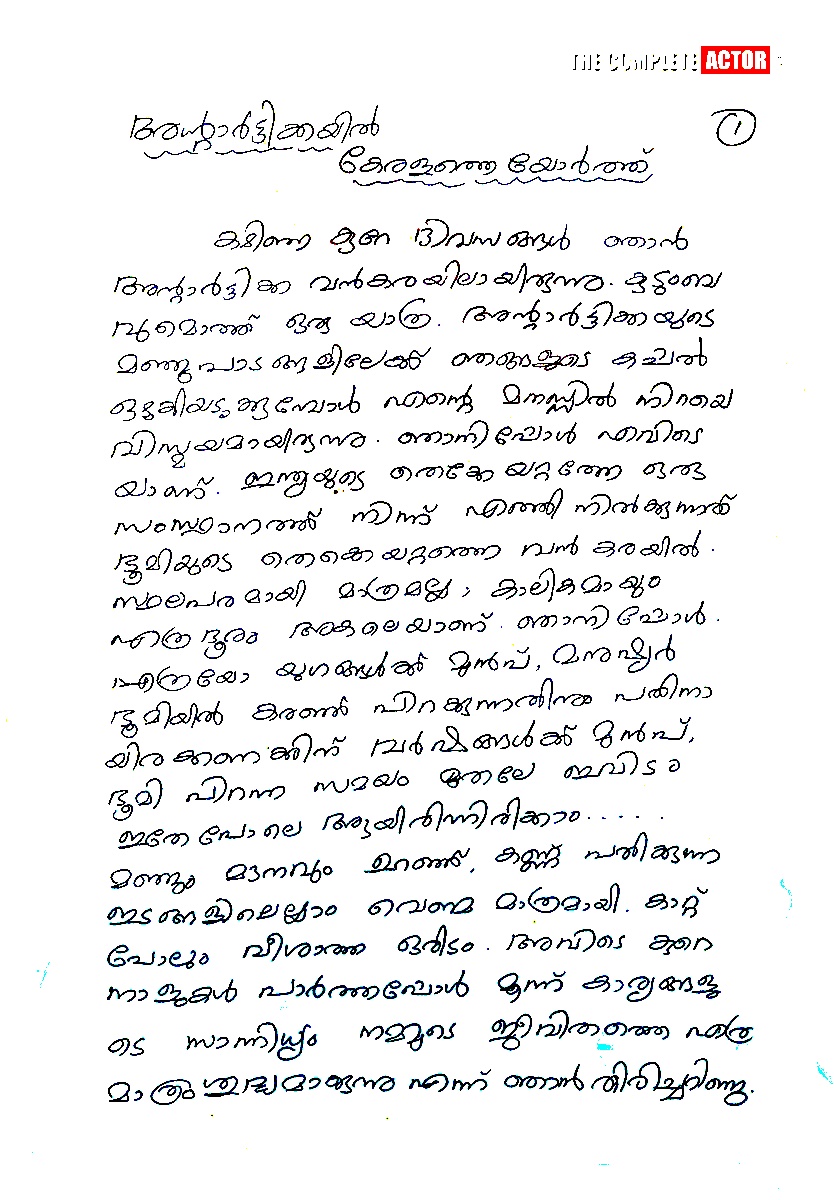 THE COMPLETE ACTOR
അന്റാർട്ടിക്കയിൽ
൧
കേരളത്തെ യോർത്ത്
കഴിഞ്ഞ കുറേ ദിവസങ്ങൾ ഞാൻ
അന്റാർട്ടിക്ക വൻകരയിലായിരുന്നു. കുടുംബ
വുമൊത്ത് ഒരു യാത്ര. അന്റാർട്ടിക്കയുടെ
മഞ്ഞുപാടങ്ങളിലേക്ക് ഞങ്ങളുടെ കപ്പൽ
ഒഴുകിയടുക്കുമ്പോൾ എന്റെ മനസ്സിൽ നിറയെ
വിസ്മയമായിരുന്നു. ഞാനിപ്പോൾ എവിടെ
യാണ്. ഇന്ത്യയുടെ തെക്കേയറ്റത്തേ ഒരു
സംസ്ഥാനത്ത് നിന്ന് എത്തി നിൽക്കുന്നത്
ഭൂമിയുടെ തെക്കെയറ്റത്തെ വൻ കരയിൽ.
സ്ഥലപരമായി മാത്രമല്ല, കാലികമായും
എത്ര ദൂരം അകലെയാണ്. ഞാനിപ്പോൾ.
എത്രയോ യുഗങ്ങൾക്ക് മുൻപ്, മനുഷ്യർ
ഭൂമിയിൽ കരഞ്ഞ് പിറക്കുന്നതിനും പതിനാ
യിരക്കണക്കിന് വർഷങ്ങൾക്ക് മുൻപ്,
ഭൂമി പിറന്ന സമയം മുതലേ ഇവിടം
ഇതേ പോലെ ആയിരിന്നിരിക്കാം......
മഞ്ഞും മൗനവും ഉറഞ്ഞ്, കണ്ണ് പതിക്കുന്ന
ഇടങ്ങളിലെല്ലാം വെണ്മ മാത്രമായി. കാറ്റ്
പോലും വീശാത്ത ഒരിടം. അവിടെ കുറെ
നാളുകൾ പാർത്തപ്പോൾ മൂന്ന് കാര്യങ്ങളു
ടെ സാന്നിധ്യം നമ്മുടെ ജീവിതത്തെ എത്ര
മാത്രം ശുദ്ധമാക്കുന്നു എന്ന് ഞാൻ തിരിച്ചറിഞ്ഞു.